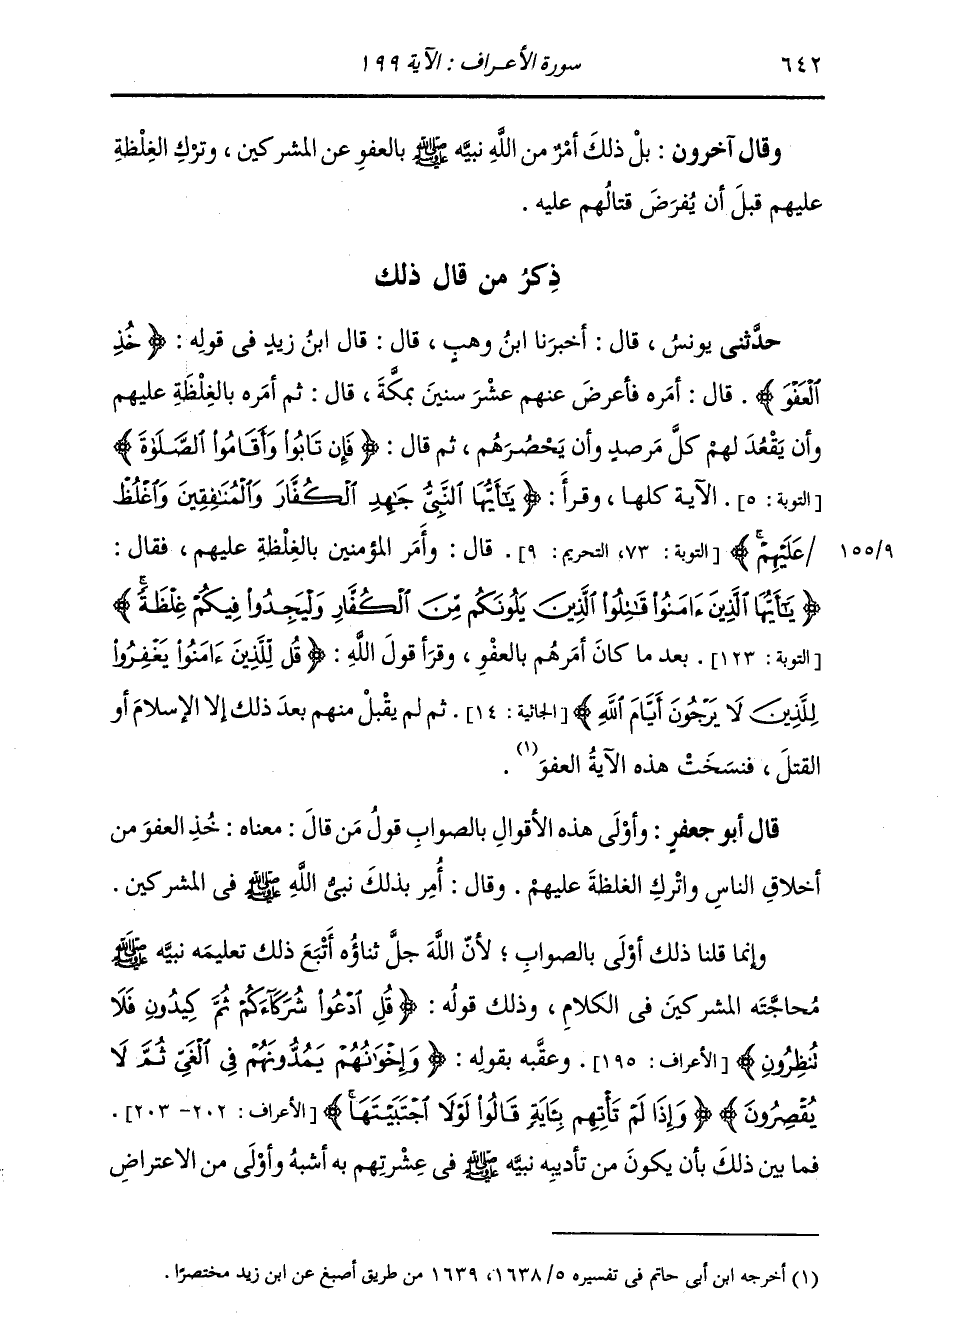 ٦٤٢ سورة الأعراف : الآية ١٩٩
وقال آخرون : بلْ ذلكَ أمْرٌ من اللَّهِ نبيَّه ﷺ بالعفوِ عن المشركين ، وترْكِ الغِلْظةِ
عليهم قبلَ أن يُفرَضَ قتالُهم عليه .
ذِكرُ من قال ذلك
حدَّثنى يونسُ ، قال : أخبرَنا ابنُ وهبٍ ، قال : قال ابنُ زيدٍ فى قولِه : ﴿ خُذِ
ٱلْعَفْوَ ﴾ . قال : أمَره فأعرضَ عنهم عشْرَ سنينَ بمكَّةَ ، قال : ثم أمَره بالغِلْظَةِ عليهم
وأن يَقْعُدَ لهمْ كلَّ مَرصدٍ وأن يَحْصُرَهُم ، ثم قال : ﴿ فَإِن تَابُوا۟ وَأَقَامُوا۟ ٱلصَّلَوٰةَ ﴾
[التوبة: ٥] . الآيةَ كلها ، وقرأَ : ﴿ يَـٰٓأَيُّهَا ٱلنَّبِىُّ جَـٰهِدِ ٱلْكُفَّارَ وَٱلْمُنَـٰفِقِينَ وَٱغْلُظْ
١٥٥/٩ /عَلَيْهِمْ ۚ﴾ [التوبة: ٧٣، التحريم: ٩] . قال : وأَمَر المؤمنين بالغِلْظةِ عليهم ، فقال :
﴿ يَـٰٓأَيُّهَا ٱلَّذِينَ ءَامَنُوا۟ قَـٰتِلُوا۟ ٱلَّذِينَ يَلُونَكُم مِّنَ ٱلْكُفَّارِ وَلْيَجِدُوا۟ فِيكُمْ غِلْظَةً ۚ﴾
[التوبة: ١٢٣] . بعد ما كانَ أمَرهُم بالعفْوِ ، وقرَأ قولَ اللَّهِ : ﴿ قُل لِّلَّذِينَ ءَامَنُوا۟ يَغْفِرُوا۟
لِلَّذِينَ لَا يَرْجُونَ أَيَّامَ ٱللَّهِ ﴾ [الجاثية: ١٤] . ثم لم يقْبلْ منهم بعدَ ذلك إلا الإسلامَ أو
القتلَ ، فنسَخَتْ هذه الآيةُ العفوَ(١) .
قال أبو جعفرٍ : وأوْلَى هذه الأقوالِ بالصوابِ قولُ مَن قالَ : معناه : خُذِ العفوَ من
أخلاقِ الناسِ واتْركِ الغلظةَ عليهمْ . وقال : أُمِر بذلكَ نبىُّ اللَّهِ ﷺ فى المشركين .
وإنما قلنا ذلك أوْلَى بالصوابِ ؛ لأنّ اللَّهَ جلَّ ثناؤُه أَتْبَعَ ذلك تعليمَه نبيَّه ﷺ
مُحاجَّتَه المشركينَ فى الكلامِ ، وذلك قولُه : ﴿ قُلِ ٱدْعُوا۟ شُرَكَآءَكُمْ ثُمَّ كِيدُونِ فَلَا
تُنظِرُونِ ﴾ [الأعراف: ١٩٥] . وعقَّبه بقولِه : ﴿ وَإِخْوَٰنُهُمْ يَمُدُّونَهُمْ فِى ٱلْغَىِّ ثُمَّ لَا
يُقْصِرُونَ ﴾ ﴿ وَإِذَا لَمْ تَأْتِهِم بِـَٔايَةٍ قَالُوا۟ لَوْلَا ٱجْتَبَيْتَهَا ۚ﴾ [الأعراف: ٢٠٢- ٢٠٣] .
فما بين ذلكَ بأن يكونَ من تأديبِه نبيَّه ﷺ فى عِشْرتِهم به أشبهُ وأوْلَى من الاعتراضِ
(١) أخرجه ابن أبى حاتم فى تفسيره ٥/١٦٣٨، ١٦٣٩ من طريق أصبغ عن ابن زيد مختصرًا .